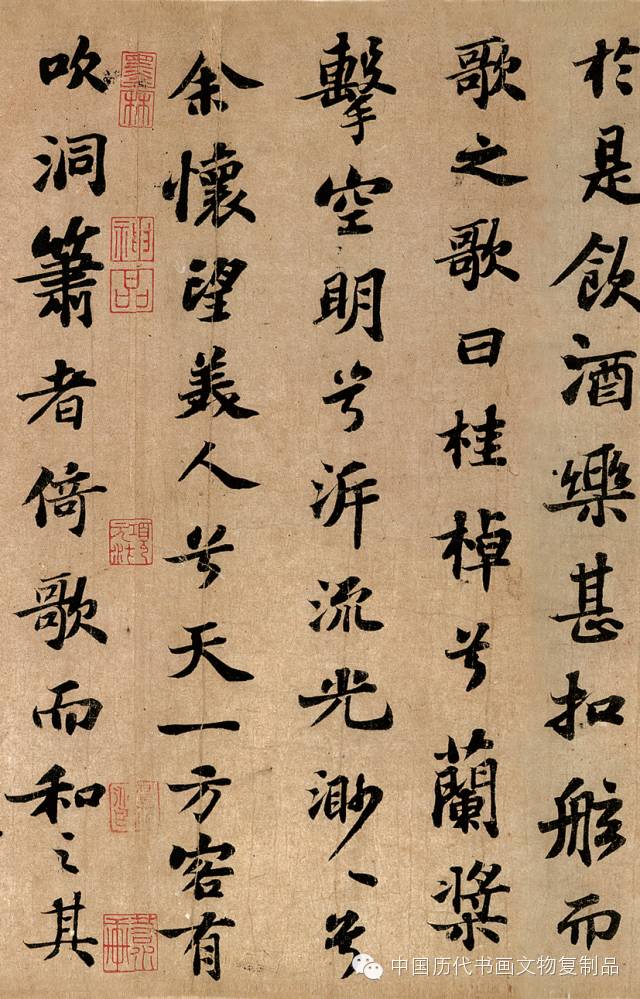 於是飲酒樂甚扣舷而
歌之歌曰桂棹兮蘭槳
擊空明兮泝流光渺〻兮
余懷望美人兮天一方客有
吹洞簫者倚歌而和之其
墨林
神品
中国历代书画文物复制品